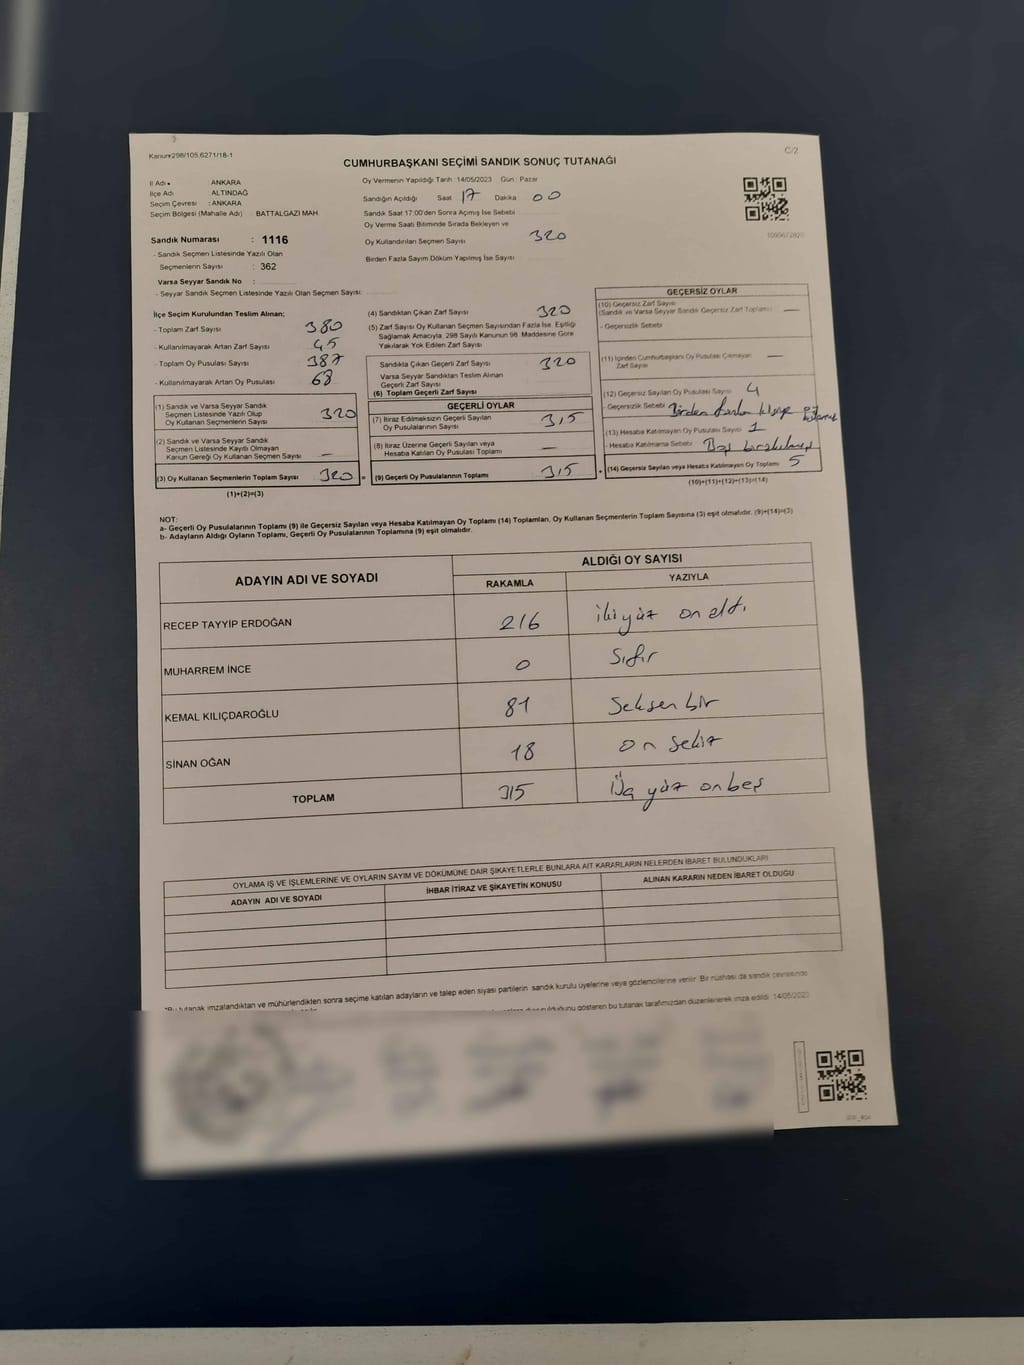 Kanun:298/105,6271/18-1
C/2
CUMHURBAŞKANI SEÇİMİ SANDIK SONUÇ TUTANAĞI
İl Adı : ANKARA
İlçe Adı ALTINDAĞ
Seçim Çevresi : ANKARA
Seçim Bölgesi (Mahalle Adı) BATTALGAZİ MAH.
Sandık Numarası : 1116
- Sandık Seçmen Listesinde Yazılı Olan
Seçmenlerin Sayısı : 362
Varsa Seyyar Sandık No :
- Seyyar Sandık Seçmen Listesinde Yazılı Olan Seçmen Sayısı:
Oy Vermenin Yapıldığı Tarih :14/05/2023 Gün : Pazar
Sandığın Açıldığı Saat 17 Dakika 00
Sandık Saat 17:00'den Sonra Açılmış İse Sebebi
Oy Verme Saati Bitiminde Sırada Bekleyen ve
Oy Kullandırılan Seçmen Sayısı 320
Birden Fazla Sayım Döküm Yapılmış İse Sayısı
İlçe Seçim Kurulundan Teslim Alınan;
- Toplam Zarf Sayısı 380
- Kullanılmayarak Artan Zarf Sayısı 45
- Toplam Oy Pusulası Sayısı 387
- Kullanılmayarak Artan Oy Pusulası 68
(1) Sandık ve Varsa Seyyar Sandık
Seçmen Listesinde Yazılı Olup
Oy Kullanan Seçmenlerin Sayısı 320
(2) Sandık ve Varsa Seyyar Sandık
Seçmen Listesinde Kayıtlı Olmayan
Kanun Gereği Oy Kullanan Seçmen Sayısı —
(3) Oy Kullanan Seçmenlerin Toplam Sayısı 320 =
(1)+(2)=(3)
(4) Sandıktan Çıkan Zarf Sayısı 320
(5) Zarf Sayısı Oy Kullanan Seçmen Sayısından Fazla İse, Eşitliği
Sağlamak Amacıyla, 298 Sayılı Kanunun 98. Maddesine Göre
Yakılarak Yok Edilen Zarf Sayısı
Sandıkta Çıkan Geçerli Zarf Sayısı 320
Varsa Seyyar Sandıktan Teslim Alınan
Geçerli Zarf Sayısı
(6) Toplam Geçerli Zarf Sayısı
GEÇERLİ OYLAR
(7) İtiraz Edilmeksizin Geçerli Sayılan
Oy Pusulalarının Sayısı 315
(8) İtiraz Üzerine Geçerli Sayılan veya
Hesaba Katılan Oy Pusulası Toplamı —
(9) Geçerli Oy Pusulalarının Toplamı 315 +
GEÇERSİZ OYLAR
(10) Geçersiz Zarf Sayısı
(Sandık ve Varsa Seyyar Sandık Geçersiz Zarf Toplamı) —
- Geçersizlik Sebebi
(11) İçinden Cumhurbaşkanı Oy Pusulası Çıkmayan
Zarf Sayısı —
(12) Geçersiz Sayılan Oy Pusulası Sayısı 4
- Geçersizlik Sebebi Birden fazla kişiye oy
(13) Hesaba Katılmayan Oy Pusulası Sayısı 1
- Hesaba Katılmama Sebebi Boş bırakılmış
(14) Geçersiz Sayılan veya Hesaba Katılmayan Oy Toplamı 5
(10)+(11)+(12)+(13)=(14)
NOT:
a- Geçerli Oy Pusulalarının Toplamı (9) ile Geçersiz Sayılan veya Hesaba Katılmayan Oy Toplamı (14) Toplamları, Oy Kullanan Seçmenlerin Toplam Sayısına (3) eşit olmalıdır. (9)+(14)=(3)
b- Adayların Aldığı Oyların Toplamı, Geçerli Oy Pusulalarının Toplamına (9) eşit olmalıdır.
ADAYIN ADI VE SOYADI ALDIĞI OY SAYISI
RAKAMLA YAZIYLA
RECEP TAYYİP ERDOĞAN 216 iki yüz on altı
MUHARREM İNCE 0 Sıfır
KEMAL KILIÇDAROĞLU 81 Seksen bir
SİNAN OĞAN 18 on sekiz
TOPLAM 315 Üç yüz onbeş
OYLAMA İŞ VE İŞLEMLERİNE VE OYLARIN SAYIM VE DÖKÜMÜNE DAİR ŞİKAYETLERLE BUNLARA AİT KARARLARIN NELERDEN İBARET BULUNDUKLARI
ADAYIN ADI VE SOYADI İHBAR İTİRAZ VE ŞİKAYETİN KONUSU ALINAN KARARIN NEDEN İBARET OLDUĞU
tutanak imzalandıktan ve mühürlendikten sonra seçime katılan adayların ve talep eden siyasi partilerin sandık kurulu üyelerine veya gözlemcilerine verilir. Bir nüshası da sandık çevresinde
gösteren bu tutanak tarafımızdan düzenlenerek imza edildi. 14/05/2023